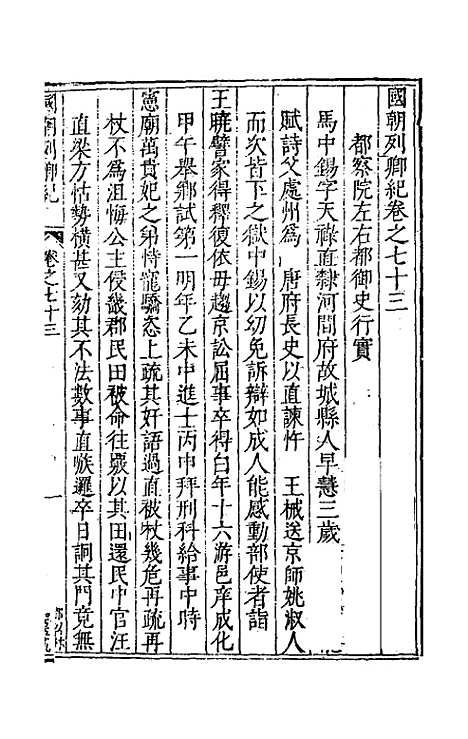 國朝列卿紀卷之七十三
都察院左右都御史行實
馬中錫字天祿直隸河間府故城縣人早慧三歲
賦詩父處州為 唐府長史以直諫忤 王械送京師姚淑人
而次皆下之獄中錫以幼免訴辯如成人能感動部使者詣
王曉譬家得釋復依母趨京訟屈事卒得白年十六游邑庠成化
甲午舉鄉試第一明年乙未中進士丙申拜刑科給事中時
憲廟萬貴妃之弟恃寵驕恣上疏其奸語過直被杖幾危再疏再
杖不為沮悔公主侵畿郡民田被命往覈以其田還民中官汪
直梁方怙勢橫甚又劾其不法數事直嗾邏卒日詗其門竟無
國朝列卿紀
卷之七十三
一